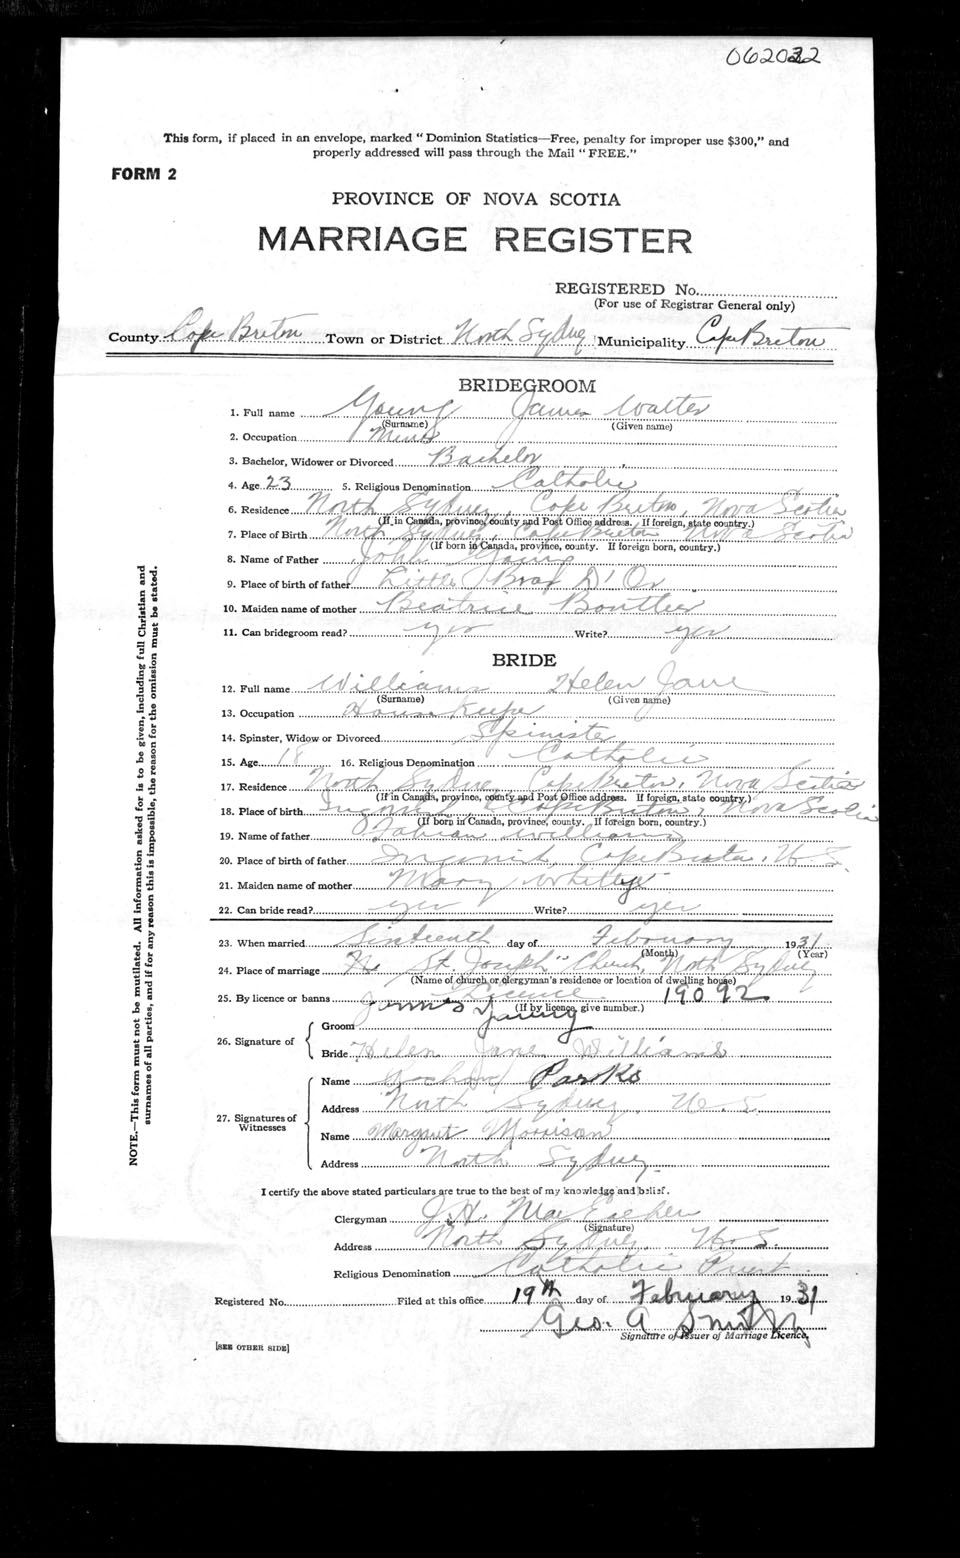 062032
This form, if placed in an envelope, marked "Dominion Statistics—Free, penalty for improper use $300," and
properly addressed will pass through the Mail "FREE."
FORM 2
PROVINCE OF NOVA SCOTIA
MARRIAGE REGISTER
REGISTERED No.
(For use of Registrar General only)
County Cape Breton Town or District North Sydney Municipality Cape Breton
BRIDEGROOM
1. Full name Young James Walter
(Surname) (Given name)
2. Occupation Miner
3. Bachelor, Widower or Divorced Bachelor
4. Age 23 5. Religious Denomination Catholic
6. Residence North Sydney, Cape Breton, Nova Scotia
(If in Canada, province, county and Post Office address. If foreign, state country.)
7. Place of Birth North Sydney, Cape Breton Nova Scotia
(If born in Canada, province, county. If foreign born, country.)
8. Name of Father John Young
9. Place of birth of father Little Bras D'Or
10. Maiden name of mother Beatrice
11. Can bridegroom read? yes Write? yes
BRIDE
12. Full name Williams Helen Jane
(Surname) (Given name)
13. Occupation House Keeper
14. Spinster, Widow or Divorced Spinster
15. Age 18 16. Religious Denomination Catholic
17. Residence North Sydney, Cape Breton, Nova Scotia
(If in Canada, province, county and Post Office address. If foreign, state country.)
18. Place of birth Ingonish, Cape Breton, Nova Scotia
(If born in Canada, province, county. If foreign born, country.)
19. Name of father Fabian Williams
20. Place of birth of father Ingonish, Cape Breton, N.S.
21. Maiden name of mother Mary
22. Can bride read? yes Write? yes
23. When married Sixteenth day of February 1931
(Month) (Year)
24. Place of marriage St. Joseph's Church, North Sydney
(Name of church or clergyman's residence or location of dwelling house)
25. By licence or banns Licence 19092
(If by licence, give number.)
26. Signature of
Groom James Young
Bride Helen Jane Williams
27. Signatures of Witnesses
Name Parks
Address North Sydney N.S.
Name Margaret Morrison
Address North Sydney
I certify the above stated particulars are true to the best of my knowledge and belief.
Clergyman J.H. MacEachen
(Signature)
Address North Sydney, N.S.
Religious Denomination Catholic Priest
Registered No. Filed at this office 19th day of February 1931
Geo. A Smith
Signature of Issuer of Marriage Licence.
[SEE OTHER SIDE]
NOTE.—This form must not be mutilated. All information asked for is to be given, including full Christian and
surnames of all parties, and if for any reason this is impossible, the reason for the omission must be stated.